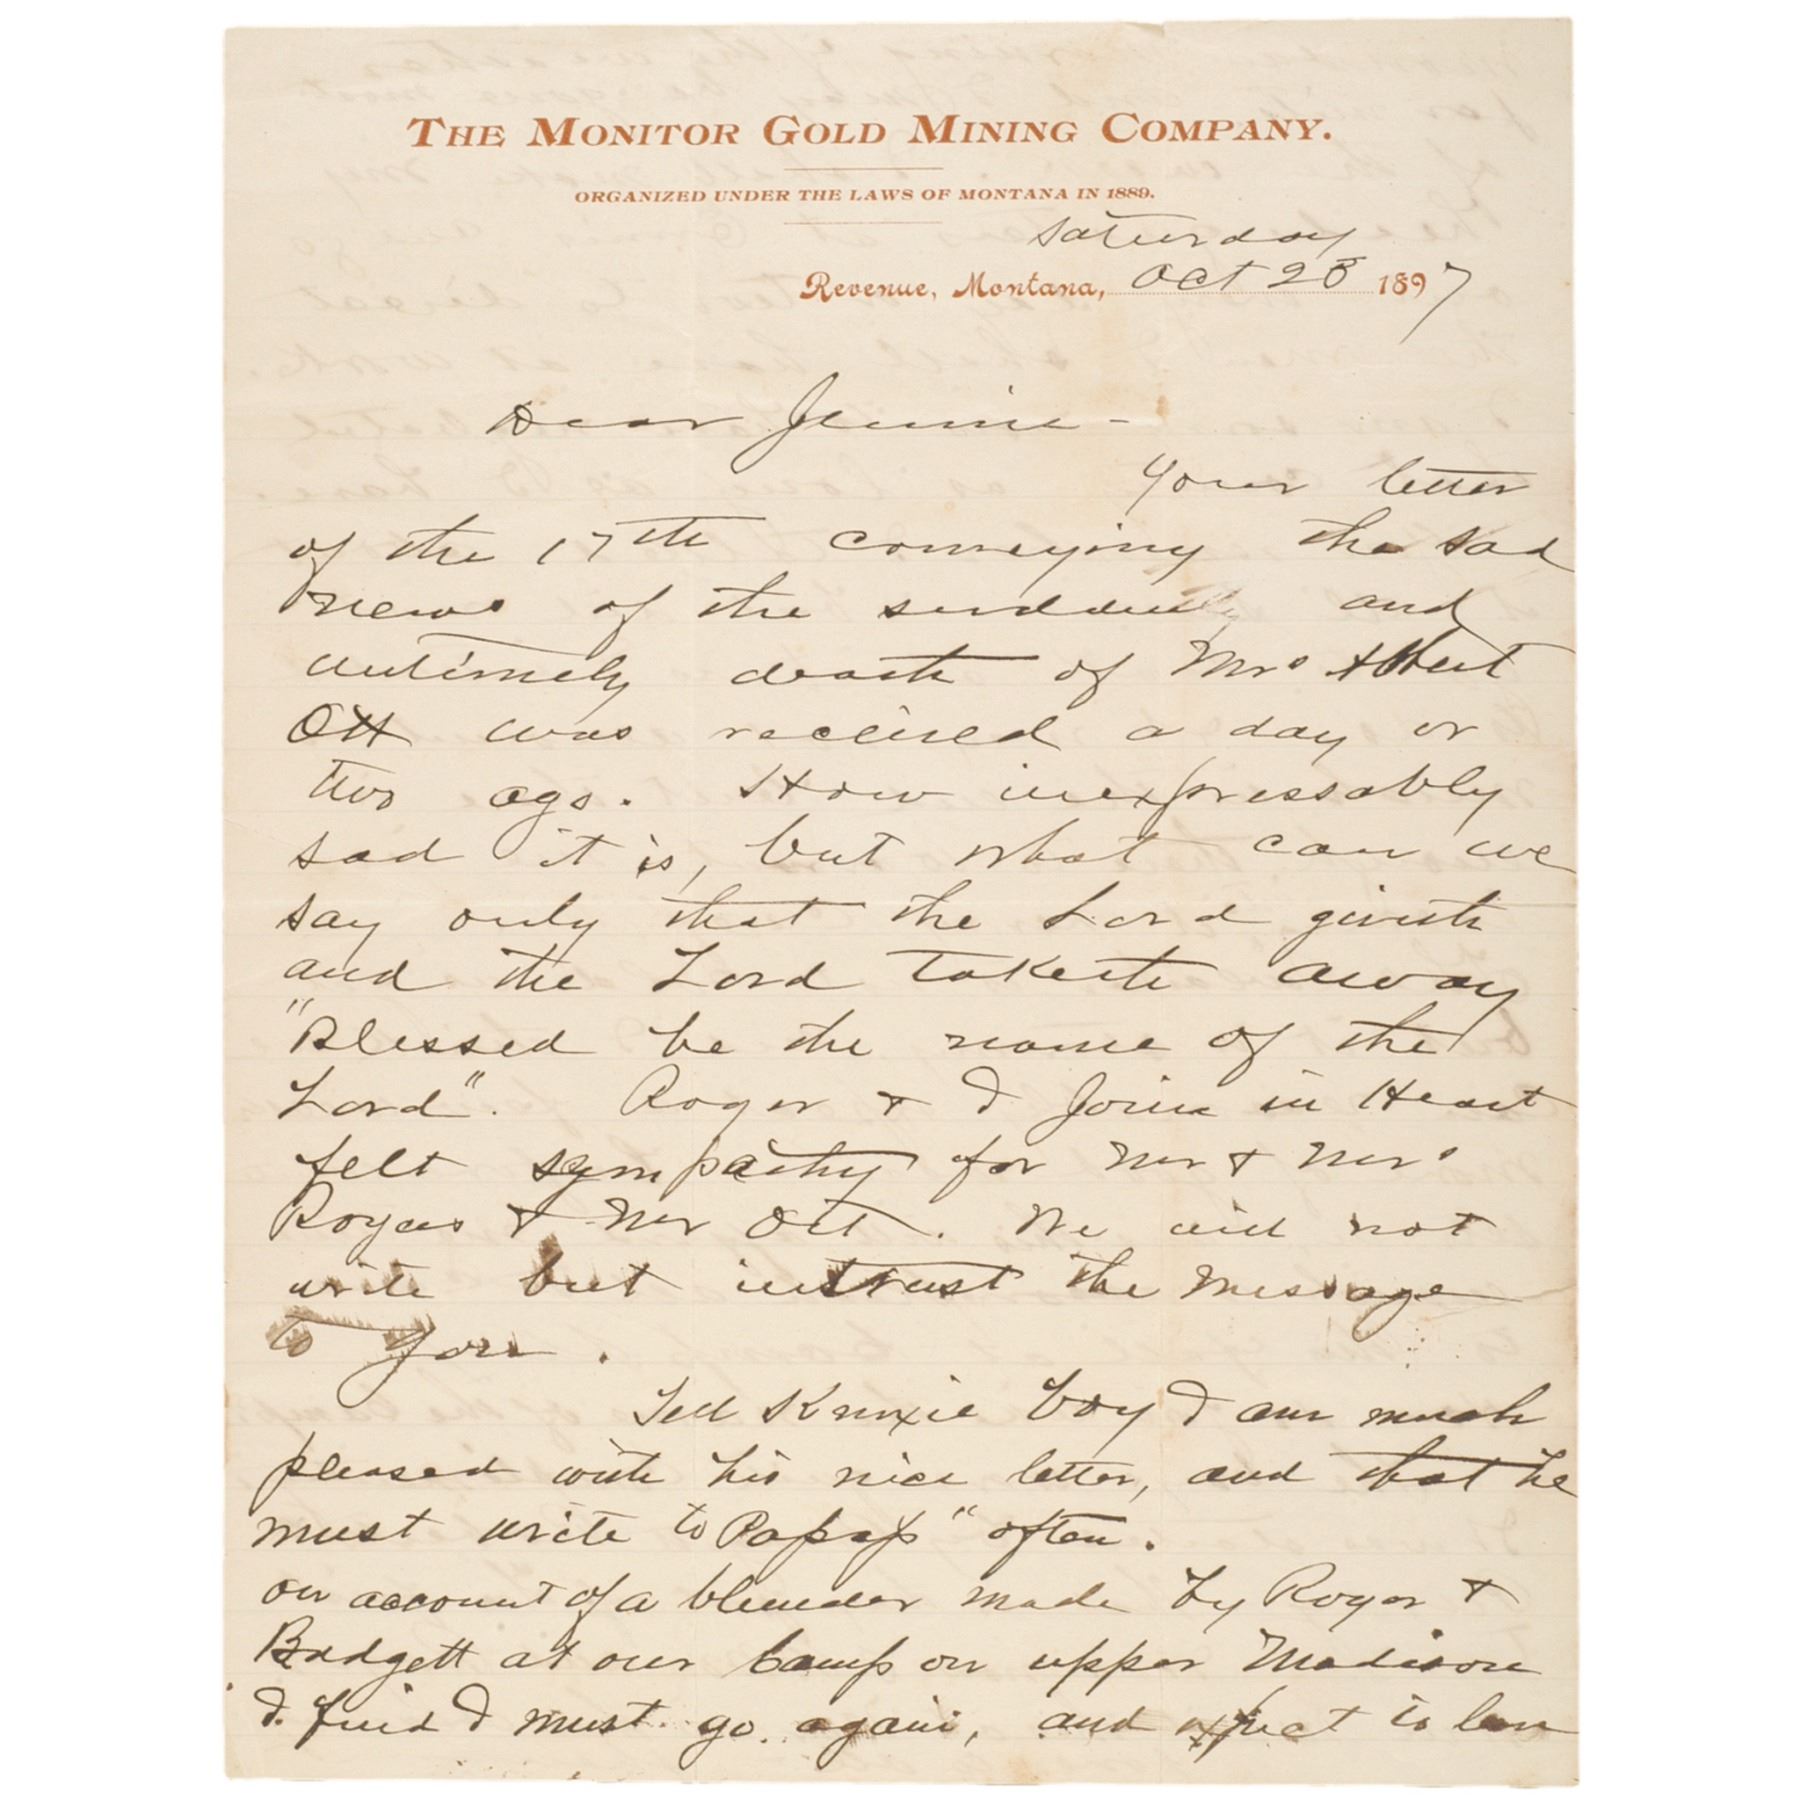 THE MONITOR GOLD MINING COMPANY.
ORGANIZED UNDER THE LAWS OF MONTANA IN 1889.
Saturday
Revenue, Montana, Oct 23 1897
Dear Jennie -
Your letter
of the 17th conveying the sad
news of the suddenly and
untimely death of Mrs Albert
Ott was received a day or
two ago. How inexpressably
sad it is, but what can we
say only that the Lord giveth
and the Lord taketh away
"Blessed be the name of the
Lord". Roger & I join in Heart
felt sympathy for Mr & Mrs
& Mr Ott. We will not
write but intrust the message
to you.
Tell boy I am much
pleased with his nice letter, and that he
must write to "often.
on account of a blunder made by Roger &
at our camp on upper Madison
I find I must go again, and expect to leave